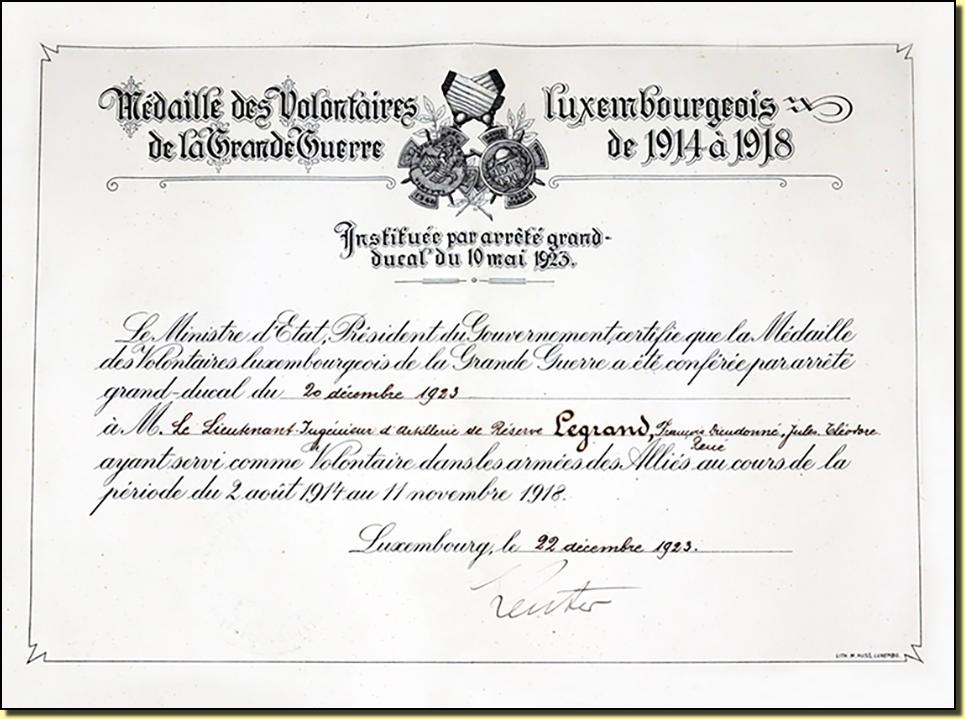 Médaille des Volontaires luxembourgeois
de la Grande Guerre de 1914 à 1918
Instituée par arrêté grand-
ducal du 10 mai 1923.
Le Ministre d'Etat, Président du Gouvernement, certifie que la Médaille
des Volontaires luxembourgeois de la Grande Guerre a été conférée par arrêté
grand-ducal du 20 décembre 1923
à M. Le Lieutenant-Ingénieur d'Artillerie de Réserve Legrand, François Dieudonné, Jules, Théodore
René
ayant servi comme Volontaire dans les armées des Alliés au cours de la
période du 2 août 1914 au 11 novembre 1918.
Luxembourg, le 22 décembre 1923.
Reuter
LITH. M. HUSS, LUXEMBG.